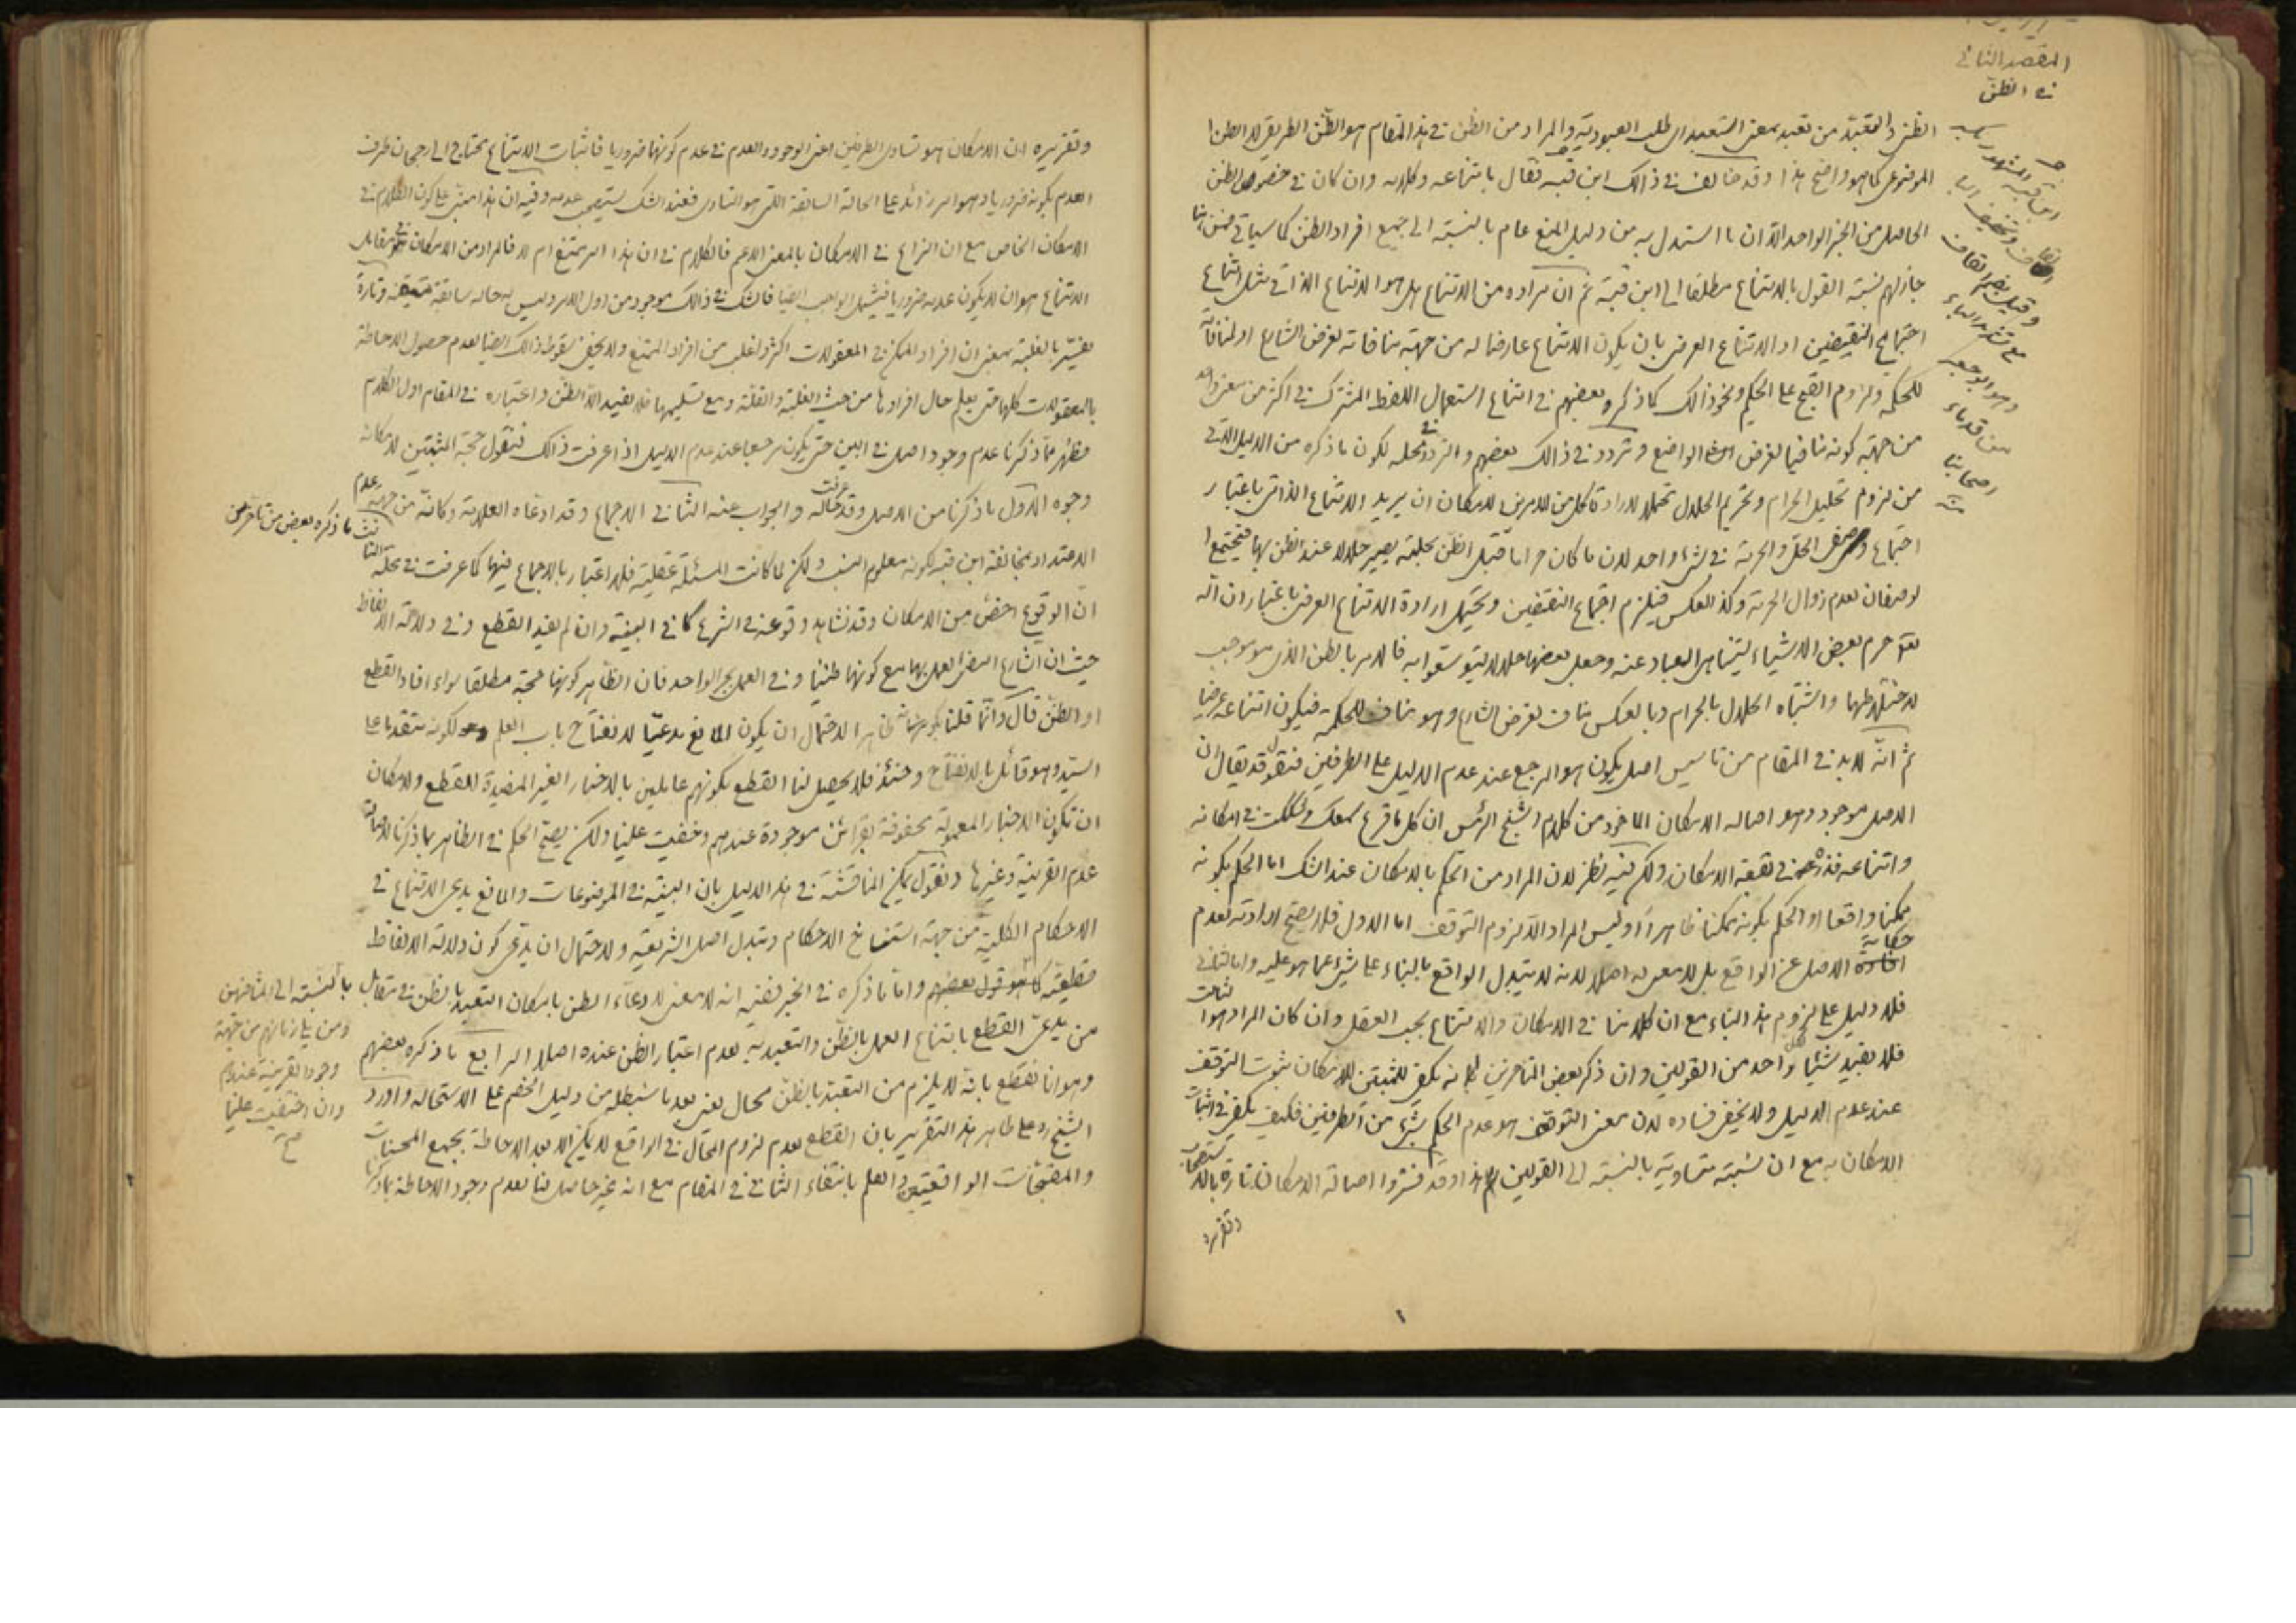 المقصد الثاني
في الظن
الظن والتعبد من تعبد بمعنى استعبد اى طلب العبودية والمراد من الظن في هذا المقام هو الظن الطريقي لا الظن
الموضوعى كما هو واضح هذا وقد خالف في ذالك ابن قبه فقال بامتناعه وكلامه وان كان في خصوص الظن
الحاصل من الخبر الواحد الا ان ما استدل به من دليل المنع عام بالنسبة الى جميع افراد الظن كما سيأتي
جاز لهم نسبة القول بالامتناع مطلقا الى ابن قبة ثم ان مراده من الامتناع هل هو الامتناع الذاتي مثل امتناع
اجتماع النقيضين او الامتناع العرضى بان يكون الامتناع عارضا له من جهة منافاته لغرض الشارع او لمنافاته
للحكمة ولزوم القبح على الحكيم ونحو ذالك كما ذكره بعضهم في امتناع استعمال اللفظ المشترك في اكثر من معنى واحد
من جهة كونه منافيا لغرض الواضع وتردد في ذالك بعضهم والتردد في محله لكون ما ذكره من الدليل الاتي
من لزوم تحليل الحرام وتحريم الحلال محتملا لارادة كل من الامرين لامكان ان يريد الامتناع الذاتي باعتبار
اجتماع وصفى الحل والحرمة في شئ واحد لان ما كان حراما قبل الظن بحليته يصير حلالا عند الظن بها فيجتمع ا
لوصفان لعدم زوال الحرمة وكذا العكس فيلزم اجتماع النقيضين ويحتمل ارادة الامتناع العرضى باعتبار ان الله
تعالى حرم بعض الاشياء ليتناهى العباد عنه وجعل بعضها حلالا ليتوسعوا به فالامر بالظن الذى هو موجب
لاختلاطها واشتباه الحلال بالحرام وبالعكس مناف لغرض الشارع وهو مناف للحكمة فيكون امتناعه عرضيا
ثم انه لابد في المقام من تاسيس اصل يكون هو المرجع عند عدم الدليل على الطرفين فنقول قد يقال ان
الاصل موجود وهو اصالة الامكان الماخوذ من كلام الشيخ الرئيس ان كل ما قرع سمعك وشككت في امكانه
وامتناعه فذره في بقعة الامكان ولكن فيه نظر لان المراد من الحكم بالامكان عند الشك اما الحكم بكونه
ممكنا واقعا او الحكم بكونه ممكنا ظاهرا او ليس المراد الا لزوم التوقف اما الاول فلا يصح ارادته لعدم
حكاية الاصل عن الواقع بل لا معنى له اصلا لانه لا يتبدل الواقع بالبناء على شئ عما هو عليه واما الثاني
فلا دليل على لزوم هذا البناء مع ان كلامنا في الامكان والامتناع بحسب العقل وان كان المراد هو الثالث
فلا يفيد شيئا لكل واحد من القولين وان ذكر بعض المتاخرين انه يكفى للمثبتين للامكان ثبوت التوقف
عند عدم الدليل ولا يخفى فساده لان معنى التوقف هو عدم الحكم بشئ من الطرفين فكيف يكفى في اثبات
الامكان به مع ان نسبته متساوية بالنسبة الى القولين هذا وقد فسروا اصالة الامكان تارة بالاستصحاب
وتقريره
ابن قبة المشهور
وقيل بضم القاف
مع تشديد الباء
وهو ابو جعفر
من قدماء
اصحابنا
منه
وتقريره ان الامكان هو تساوى الطرفين اعنى الوجود والعدم في عدم كونهما ضروريا فاثبات الامتناع يحتاج الى رجحان طرف
العدم بكونه ضروريا وهو امر زائد على الحالة السابقة التى هو التساوى فعند الشك يستصحب عدمه وفيه ان هذا مبنى على كون الكلام في
الامكان الخاص مع ان النزاع في الامكان بالمعنى الاعم فالكلام في ان هذا امر ممتنع ام لا فالمراد من الامكان في مقابل
الامتناع هو ان لا يكون عدمه ضروريا فيشمل الواجب ايضا فالشك في ذالك موجود من اول الامر وليس له حالة سابقة متيقنة وتارة
يفسر بالغلبة بمعنى ان افراد الممكن في المعقولات اكثر واغلب من افراد الممتنع ولا يخفى سقوط ذالك ايضا لعدم حصول الاحاطة
بالمعقولات كلها حتى يعلم حال افرادها من حيث الغلبة والقلة ومع تسليمها فلا يفيد الا الظن واعتباره في المقام اول الكلام
فظهر مما ذكرنا عدم وجود اصل في البين حتى يكون مرجعا عند عدم الدليل اذا عرفت ذالك فنقول حجة المثبتين لامكانه
وجوه الاول ما ذكرنا من الاصل وقد عرفت حاله والجواب عنه الثاني الاجماع وقد ادعاه العلامة وكانه من جهة عدم
الاعتداد بمخالفة ابن قبه لكونه معلوم النسب ولكن لما كانت المسئلة عقلية فلا اعتبار بالاجماع فيها كما عرفت في محله الثالث ما ذكره بعض من تاخر من
ان الوقوع اخص من الامكان وقد نشاهد وقوعه في الشرع كما في البينة وان لم يفد القطع وفي دلالة الالفاظ
حيث ان الشارع امضى العمل بها مع كونها ظنيا وفي العمل بخبر الواحد فان الظاهر كونها حجة مطلقا سواء افاد القطع
او الظن قال وانما قلنا ظاهرا لاحتمال ان يكون المانع مدعيا لانفتاح باب العلم لكونه متقدما على
السيد وهو قائل بالانفتاح وحينئذ فلا يحصل لنا القطع بكونهم عاملين بالاخبار الغير المفيدة للقطع ولامكان
ان تكون الاخبار المعمولة محفوفة بقرائن موجودة عندهم وخفيت علينا ولكن يصح الحكم في الظاهر بما ذكرنا لاصالة
عدم القرينة وغيرها ونقول يمكن المناقشة في هذا الدليل بان البينة في الموضوعات والمانع يدعى الامتناع في
الاحكام الكلية من جهة استنساخ الاحكام وتبدل اصل الشريعة ولاحتمال ان يدعى كون دلالة الالفاظ
قطعية كما هو قول بعضهم واما ما ذكره في الخبر ففيه انه لا معنى لادعاء الظن بامكان التعبد بالظن في مقابل
من يدعى القطع بامتناع العمل بالظن والتعبد به لعدم اعتبار الظن عنده اصلا الرابع ما ذكره بعضهم
وهو انا نقطع بانه لا يلزم من التعبد بالظن محال يعنى بعد ما سنبطله من دليل الخصم على الاستحالة واورد
الشيخ ره على ظاهر هذا التقرير بان القطع بعدم لزوم المحال في الواقع لا يمكن الا بعد الاحاطة بجميع المحسنات
والمقبحات الواقعيتين والعلم بانتفاء الثاني في المقام مع انه غير حاصل لنا لعدم وجود الاحاطة بما ذكرنا
بالنسبة الى المتاخرين
ومن يقارنهم من جهة
وجود القرينة عندهم
وان اختفيت علينا